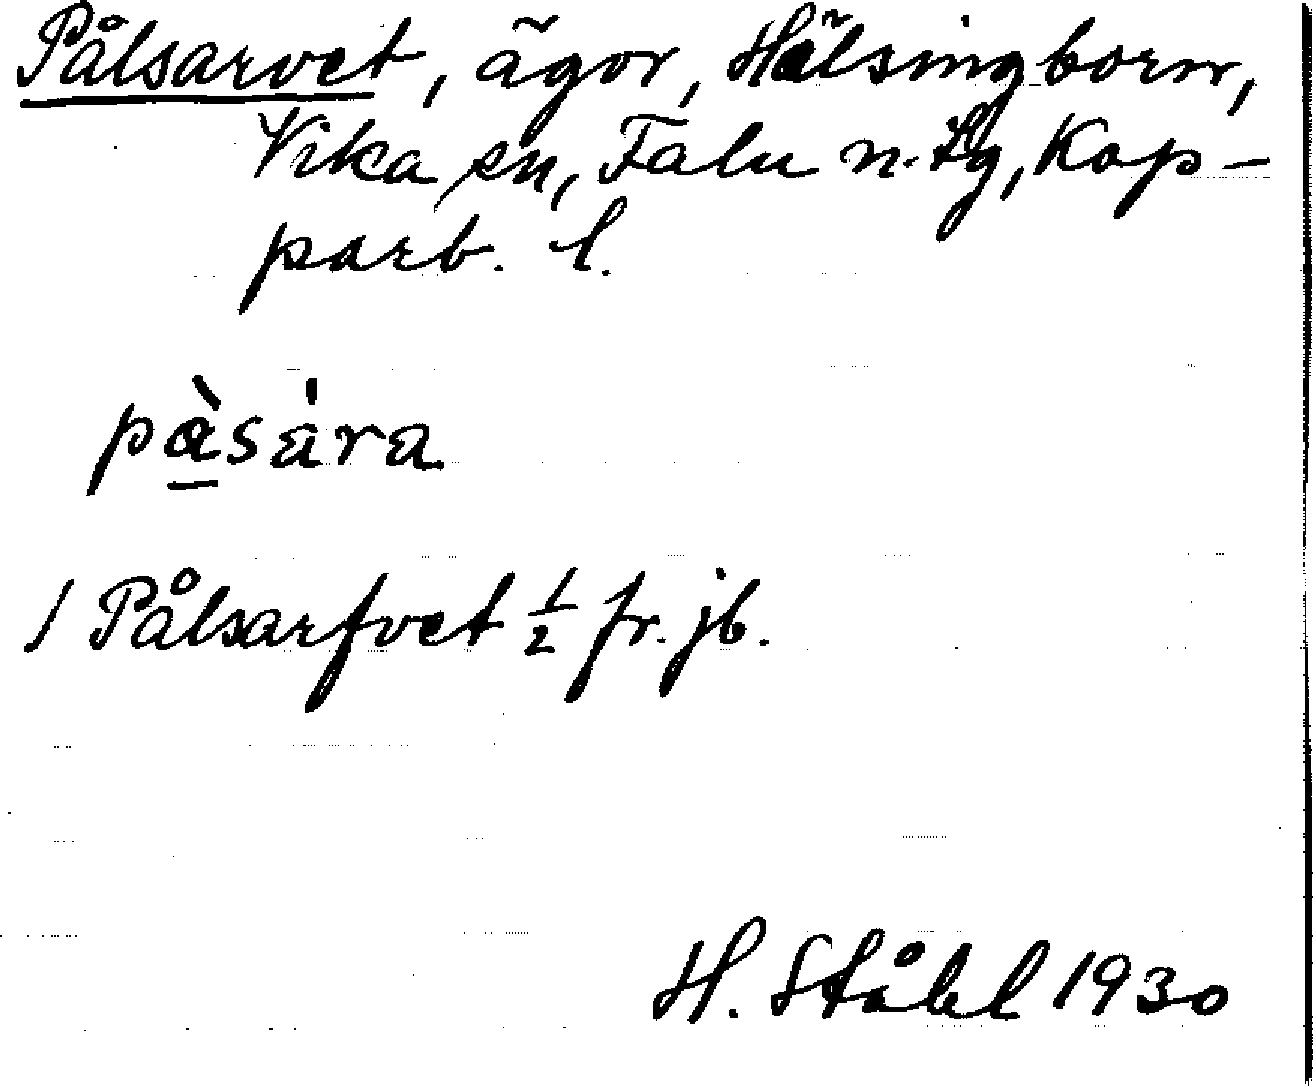 Pålsarvet, ägor, Hälsingborn,
Vika sn, Falu n. tg, Kop-
parb. l.
pàsȧra
1 Pålsarfvet ½ fr. jb.
H. Ståhl 1930